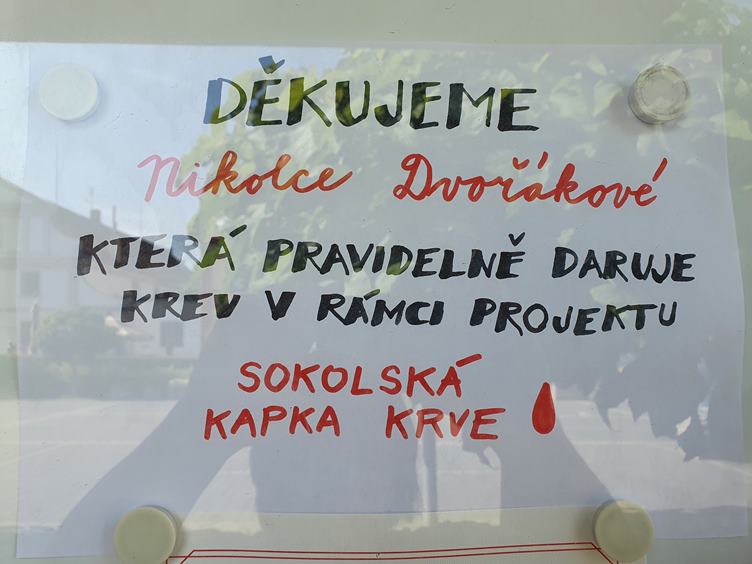 DĚKUJEME
Nikolce Dvořákové
KTERÁ PRAVIDELNĚ DARUJE
KREV V RÁMCI PROJEKTU
SOKOLSKÁ
KAPKA KRVE